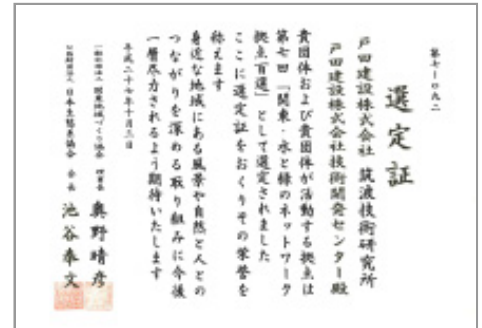 第七-〇九二
選定証
戸田建設株式会社 筑波技術研究所
戸田建設株式会社技術開発センター殿
貴団体および貴団体が活動する拠点は
第七回「関東・水と緑のネットワーク
拠点百選」として選定されました
ここに選定証をおくりその栄誉を
称えます
身近な地域にある風景や自然と人との
つながりを深める取り組みに今後
一層尽力されるよう期待いたします
平成二十七年十月三日
一般社団法人 関東地域づくり協会 理事長 奥野晴彦
公益財団法人 日本生態系協会 会長 池谷奉文